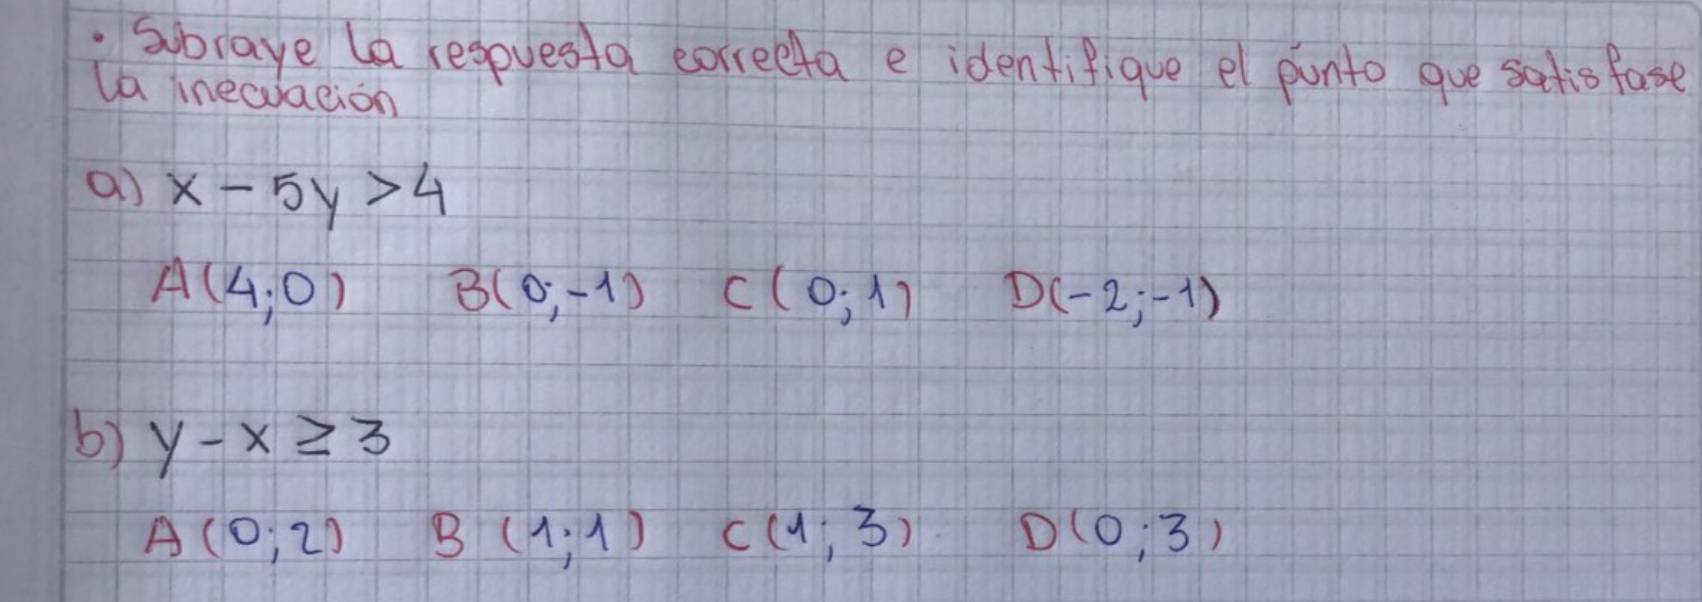 • Subraye la respuesta correcta e identifique el punto que satisfase
la inecuación
a) x - 5y > 4
A(4;0) B(0;-1) C(0;1) D(-2;-1)
b) y - x ≥ 3
A(0;2) B(1;1) C(1;3) D(0;3)